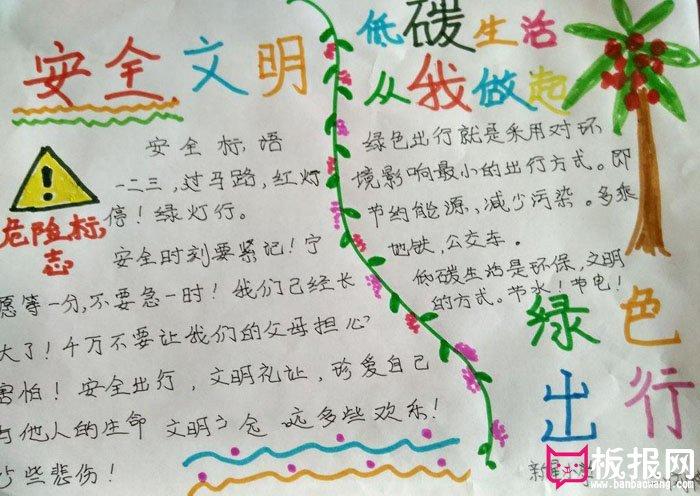 安全文明
安全标语
一二三,过马路,红灯
停!绿灯行。
安全时刻要紧记!宁
愿等一分,不要急一时!我们已经长
大了!千万不要让我们的父母担心
害怕!安全出行,文明礼让,珍爱自己
与他人的生命 文明 多些欢乐!
少些悲伤!
危险标
志
低碳生活
从我做起
绿色出行就是采用对环
境影响最小的出行方式。即
节约能源,减少污染。多乘
地铁,公交车。
低碳生活是环保,文明
的方式。节水!节电!
绿色
出行
板报网
www.banbaowang.com